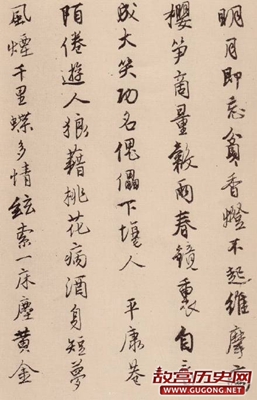 明月即忘貧香燈不起維摩
櫻笋商量穀雨春鏡裏自
成大笑功名傀儡下場人 平康巷
陌倦遊人狼藉桃花病酒身短夢
風煙千里蝶多情絃索一床塵黃金
故宫历史网
WWW.GUGONG.NET